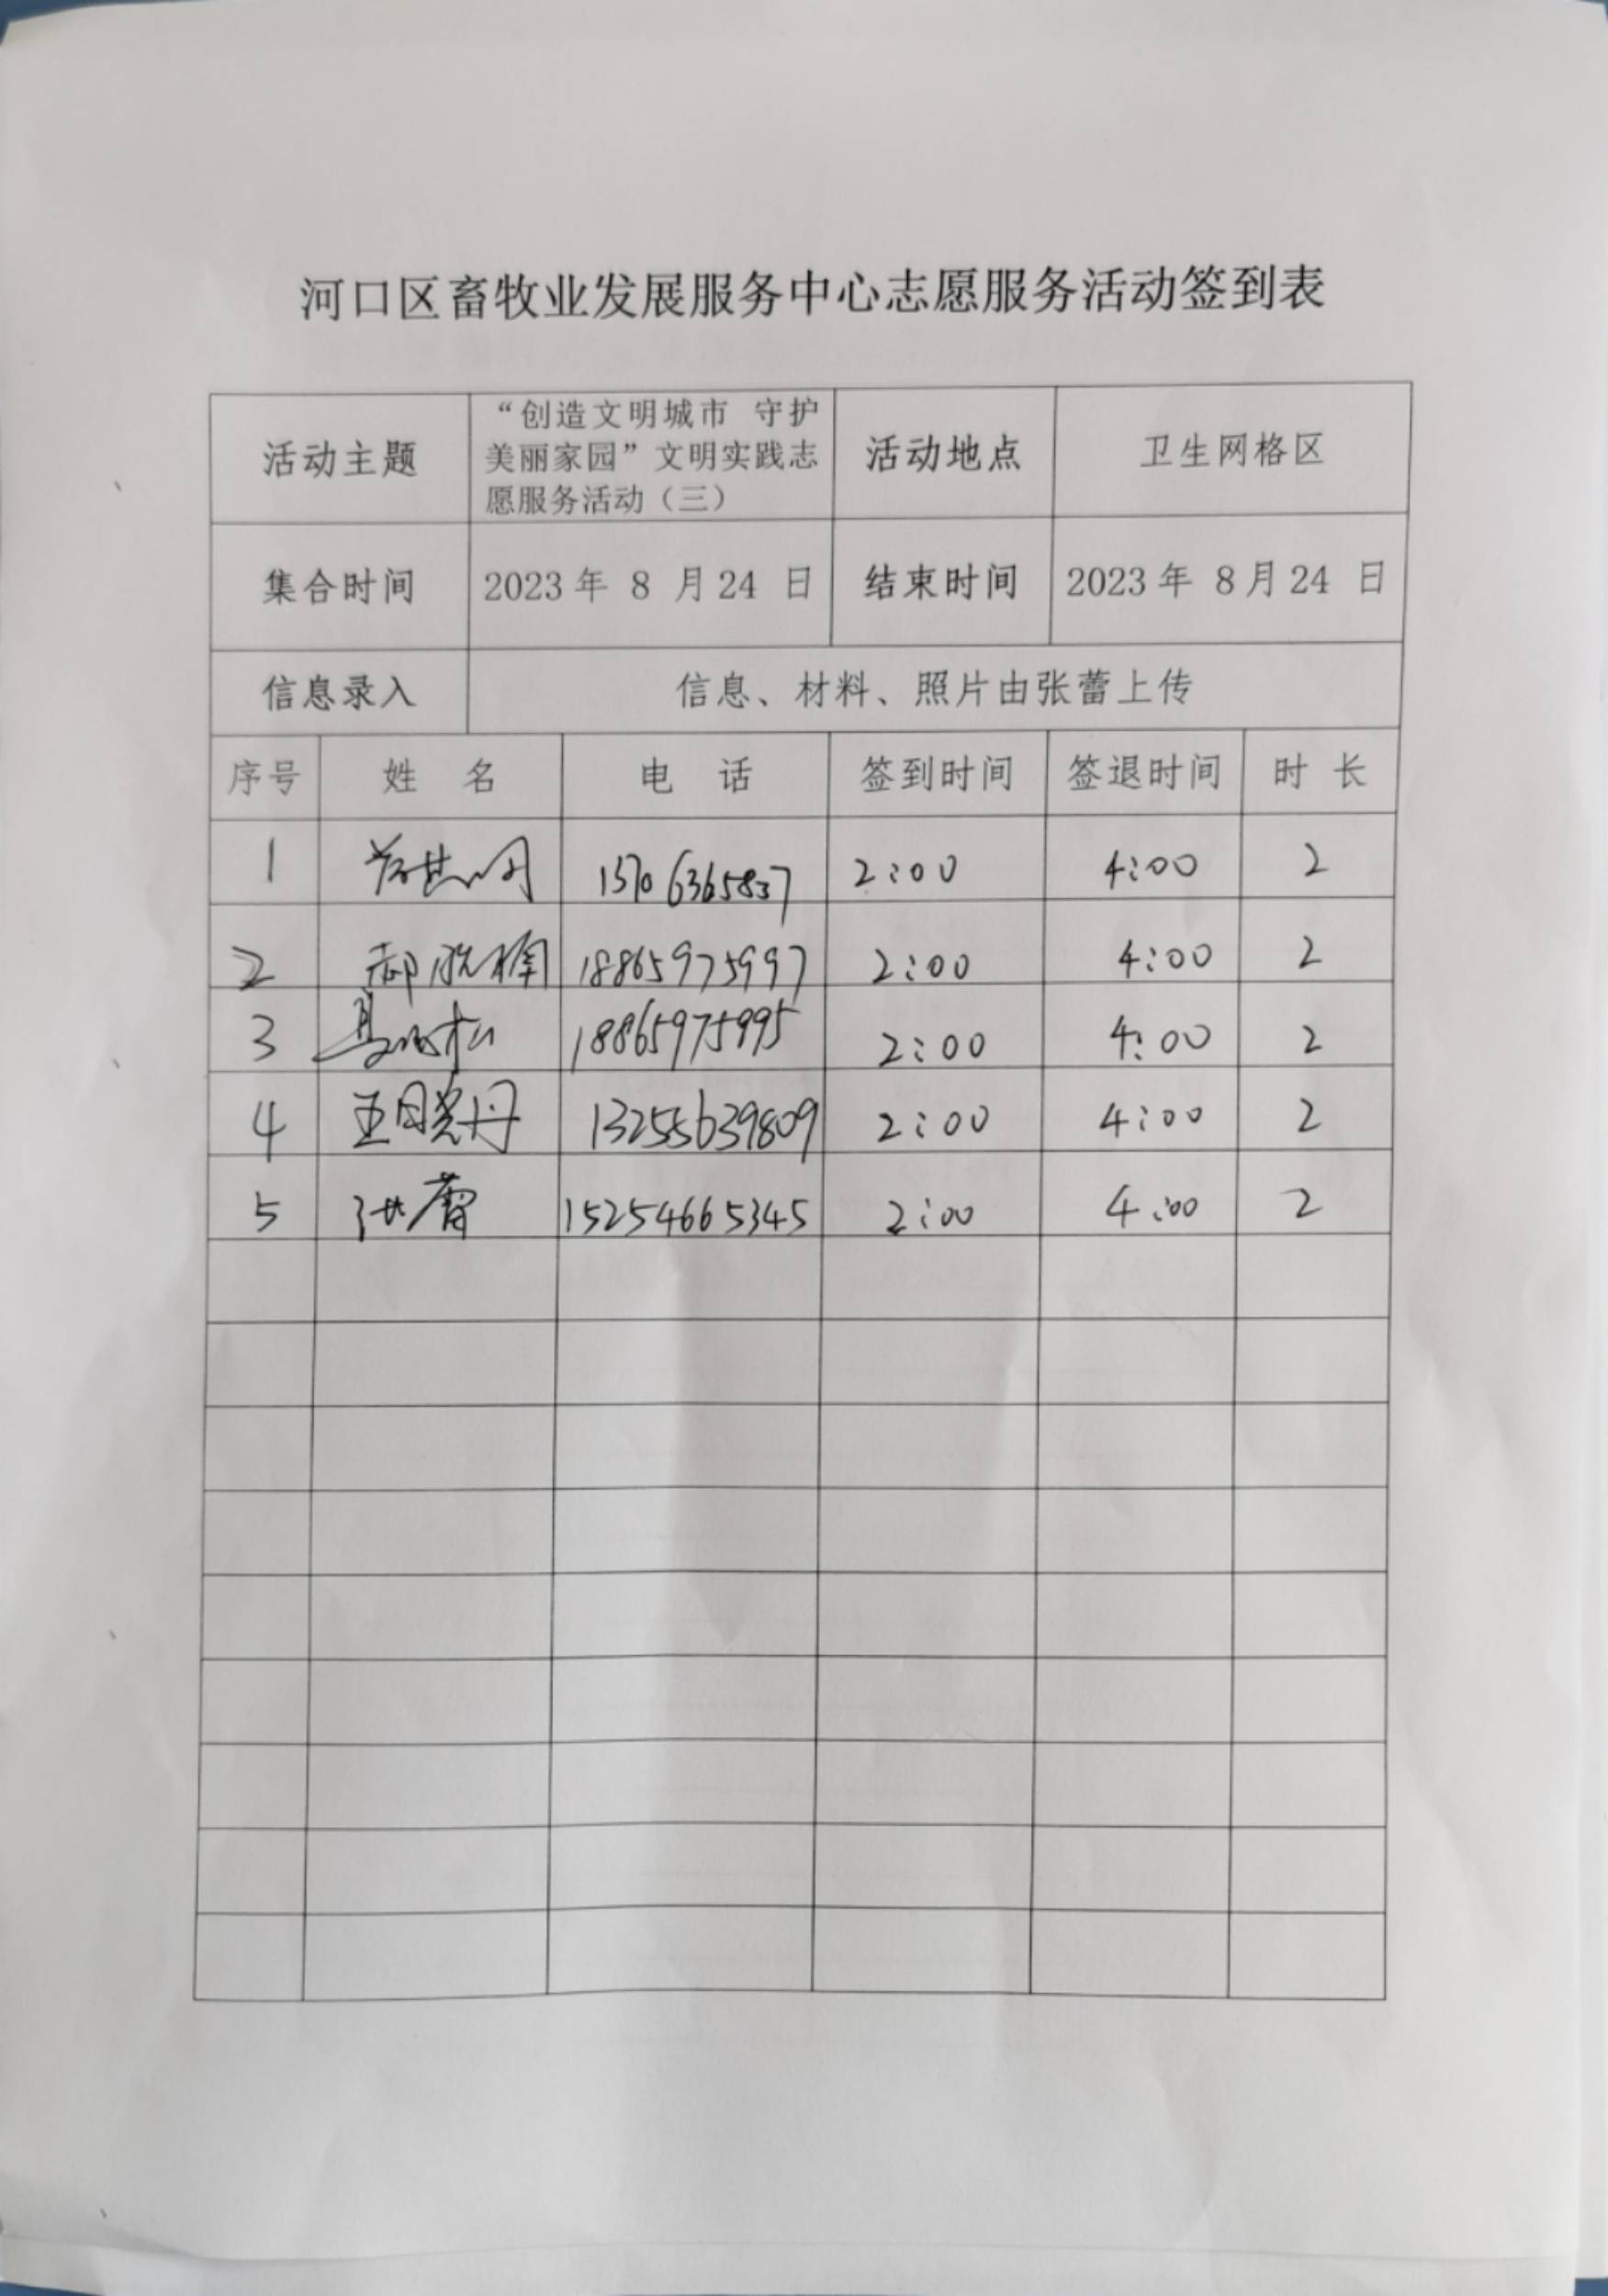 河口区畜牧业发展服务中心志愿服务活动签到表
活动主题
“创造文明城市 守护
美丽家园”文明实践志
愿服务活动（三）
活动地点
卫生网格区
集合时间
2023年 8 月24 日
结束时间
2023年 8月24 日
信息录入
信息、材料、照片由张蕾上传
序号 姓 名 电 话 签到时间 签退时间 时 长
1 13706365837 2:00 4:00 2
2 郝 18865975997 2:00 4:00 2
3 18865975995 2:00 4:00 2
4 王 丹 13255639809 2:00 4:00 2
5 张蕾 15254665345 2:00 4:00 2